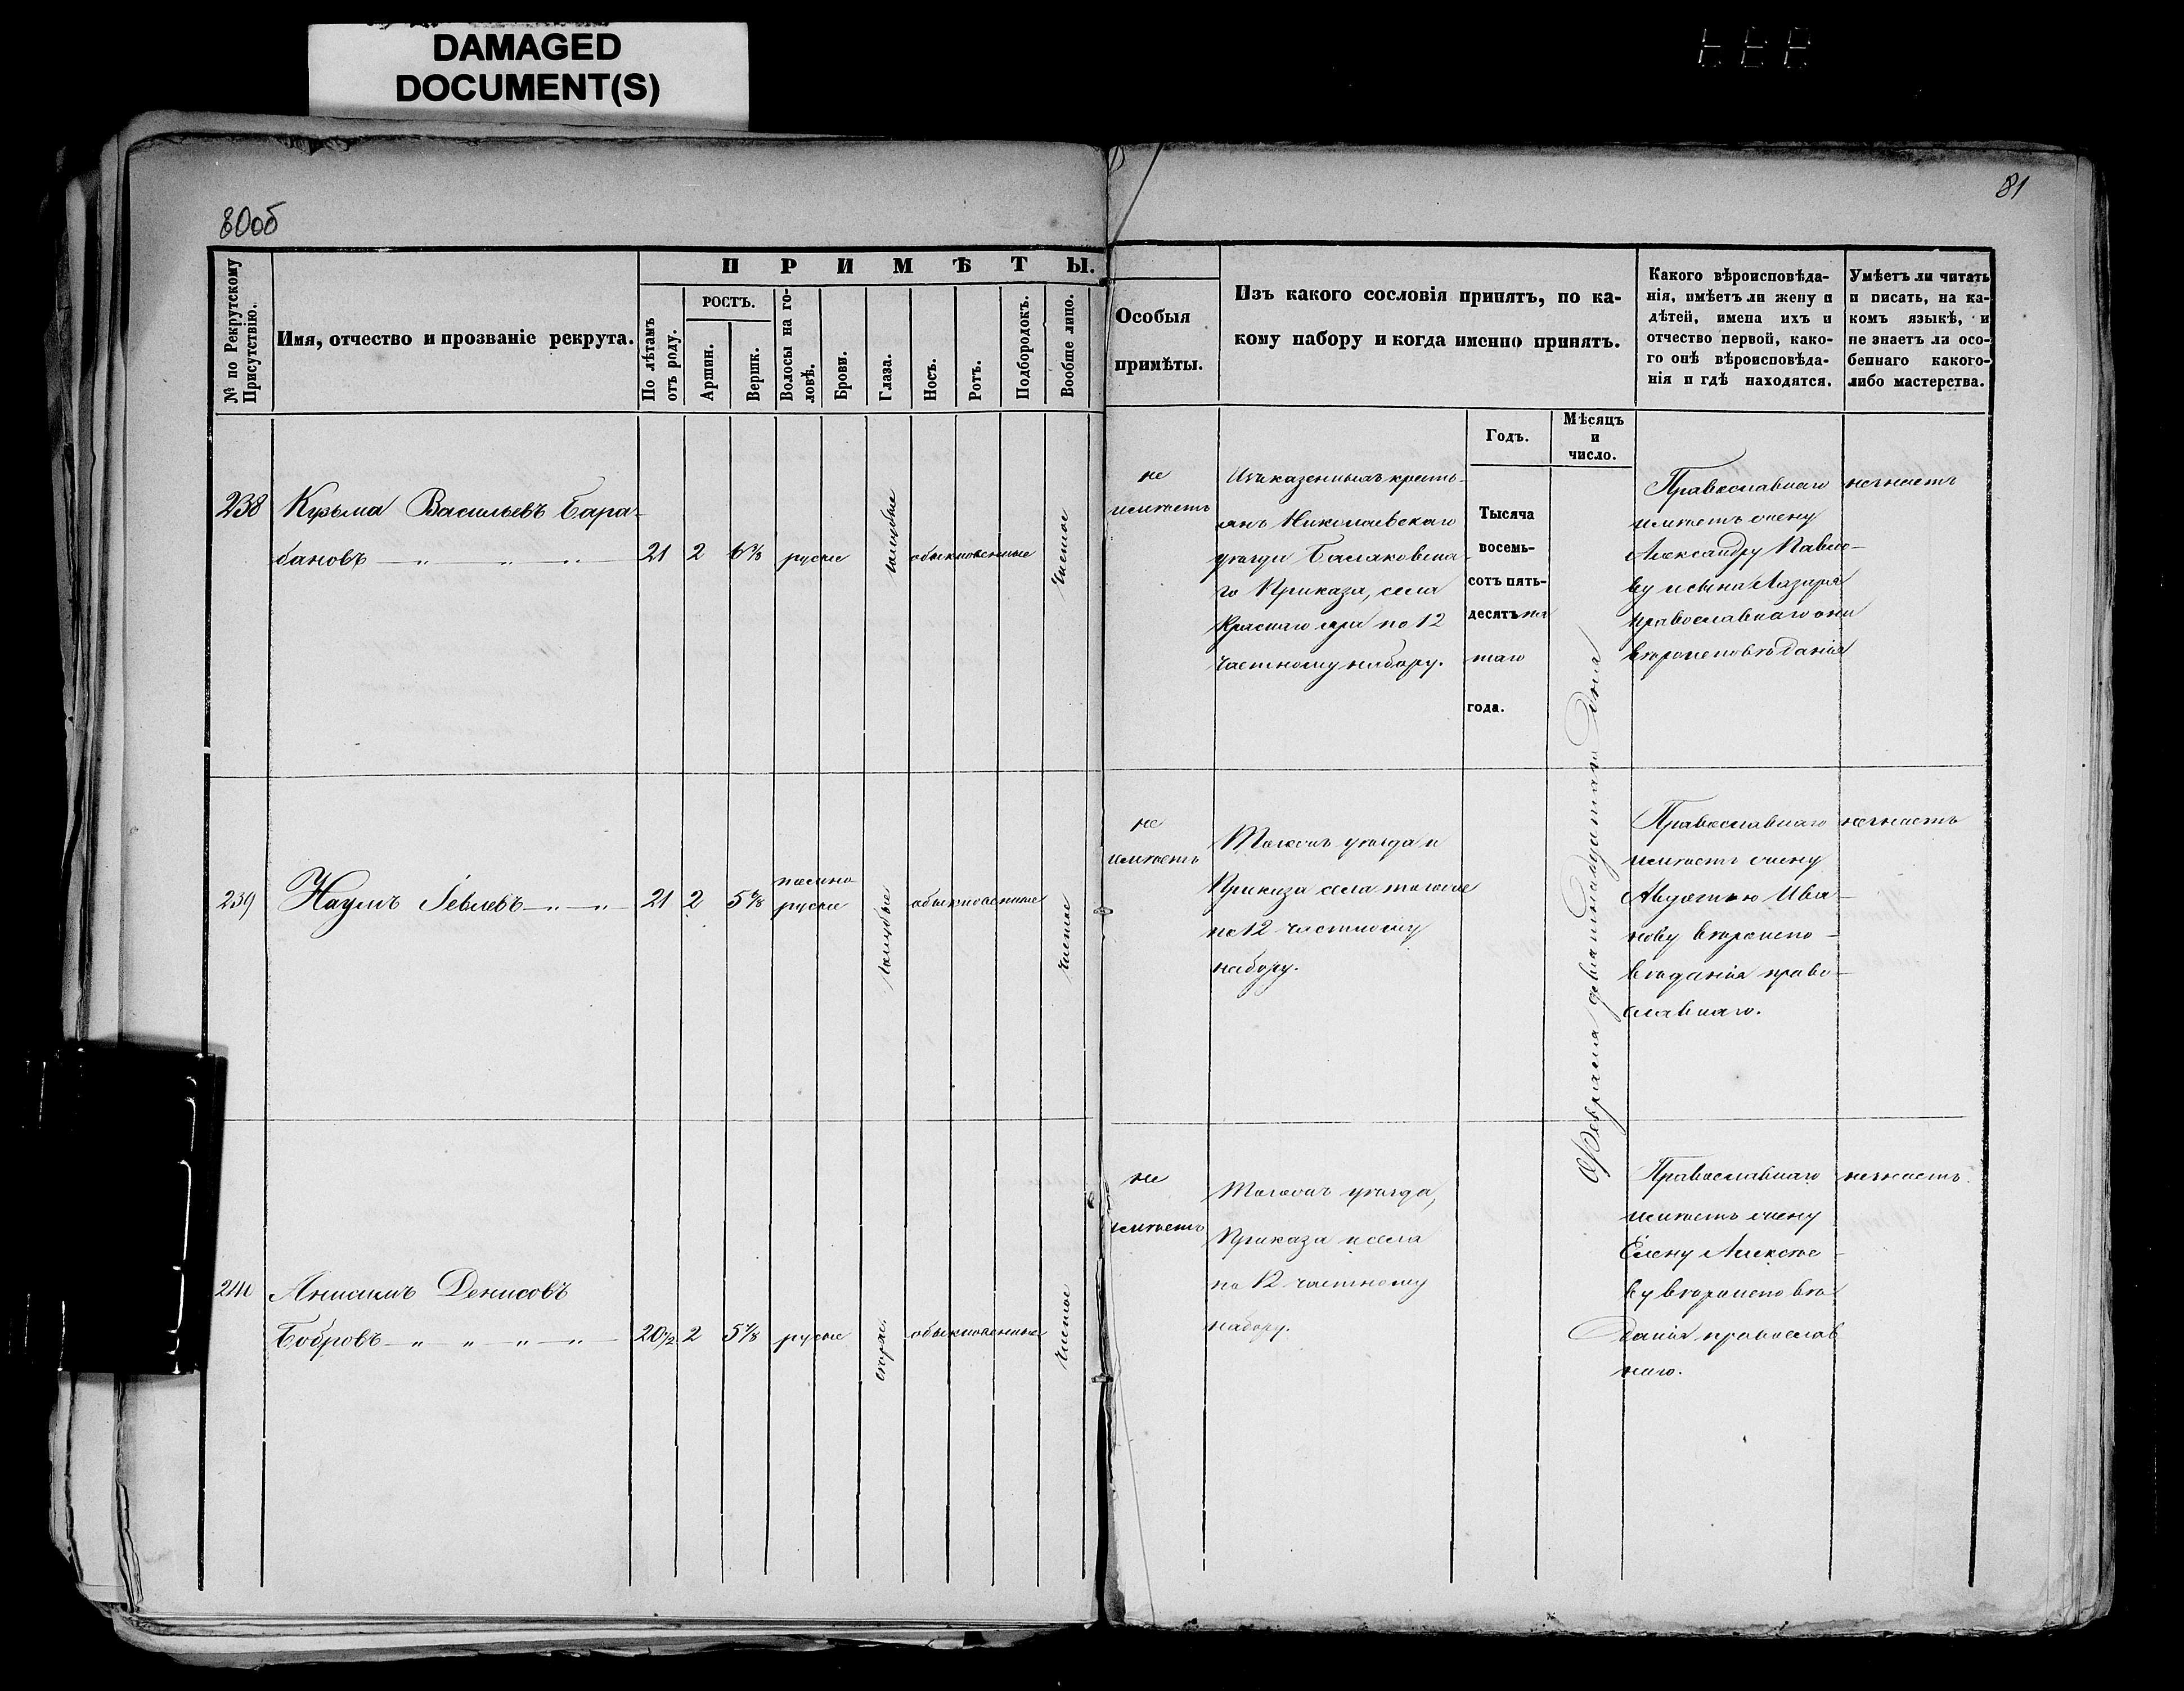 DAMAGED
DOCUMENT(S)
80об
81
№ по Рекрутскому Присутствію.
Имя, отчество и прозваніе рекрута.
ПРИМѢТЫ.
По лѣтамъ отъ роду.
РОСТЪ.
Аршин.
Вершк.
Волосы на го-
ловѣ.
Брови.
Глаза.
Носъ.
Ротъ.
Подбородокъ.
Вообще лицо.
Особыя
примѣты.
Изъ какого сословія принятъ, по ка-
кому набору и когда именно принятъ.
Годъ.
Мѣсяцъ
и
число.
Какого вѣроисповѣда-
нія, имѣетъ ли жену и
дѣтей, имена ихъ и
отчество первой, како-
го онѣ вѣроисповѣда-
нія и гдѣ находятся.
Умѣетъ ли читать
и писать, на ка-
комъ языкѣ, и
не знаетъ ли осо-
беннаго какого-
либо мастерства.
238
Кузьма Васильевъ Бара-
бановъ — „ — „ — „ —
21 2 6⅞ русые
голубые
обыкновенные
чистое
не
имѣетъ
Изъ казенныхъ кресть-
янъ Николаевскаго
уѣзда Балаковска-
го Приказа, села
Краснаго яра по 12
частному набору.
Тысяча
восемь-
сотъ пять-
десять пя
таго
года.
Февраля девятнадцатаго Дня
Православнаго
имѣетъ жену
Александру Павло-
ву и сына Лазаря
православнаго они
вѣроисповѣданія
незнаетъ
239
Наумъ Іевлевъ — „ — „ —
21 2 5⅞
темно
русые
голубые
обыкновенные
чистое
не
имѣетъ
Тогожъ уѣзда и
Приказа села тогоже
по 12 частному
набору.
Православнаго
имѣетъ жену
Авдотью Ива-
нову вѣроиспо-
вѣданія право-
славнаго.
незнаетъ
240
Анисимъ Денисовъ
Бобровъ — „ — „ — „ — „ —
20½ 2 5⅞ русые
сѣрые.
обыкновенные
чистое
не
имѣетъ
Тогожъ уѣзда,
Приказа и села
по 12 частному
набору.
Православнаго
имѣетъ жену
Елену Алексѣе-
ву вѣроисповѣ
данія православ
наго.
незнаетъ.